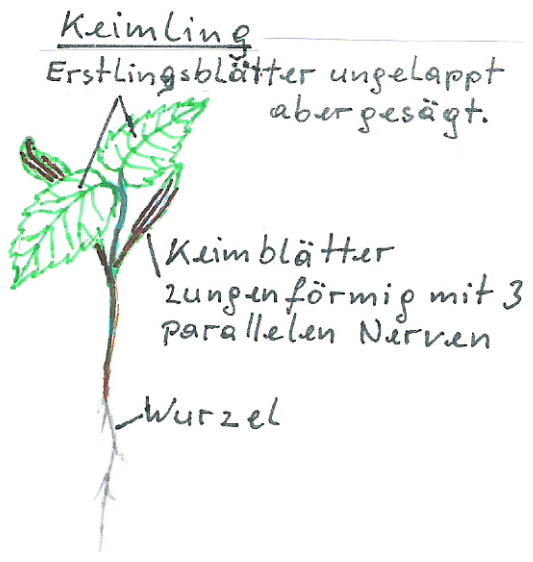 Keimling
Erstlingsblätter ungelappt
aber gesägt.
Keimblätter
zungenförmig mit 3
parallelen Nerven
Wurzel